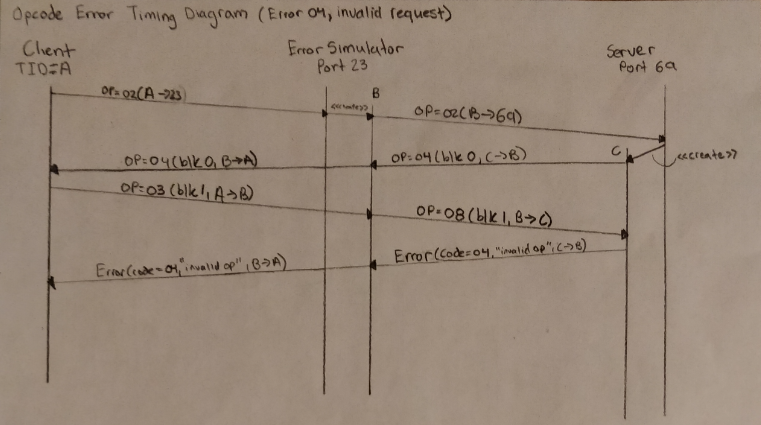 Opcode Error Timing Diagram (Error 04, invalid request)
Client
TID=A
Error Simulator
Port 23
Server
Port 69
B
OP=02(A→23)
<<create>>
OP=02(B→69)
C
<<create>>
OP=04(blk0, B→A)
OP=04(blk 0, C→B)
OP=03(blk1, A→B)
OP=08(blk1, B→C)
Error(Code=04,"invalid op", B→A)
Error(Code=04,"invalid op", C→B)